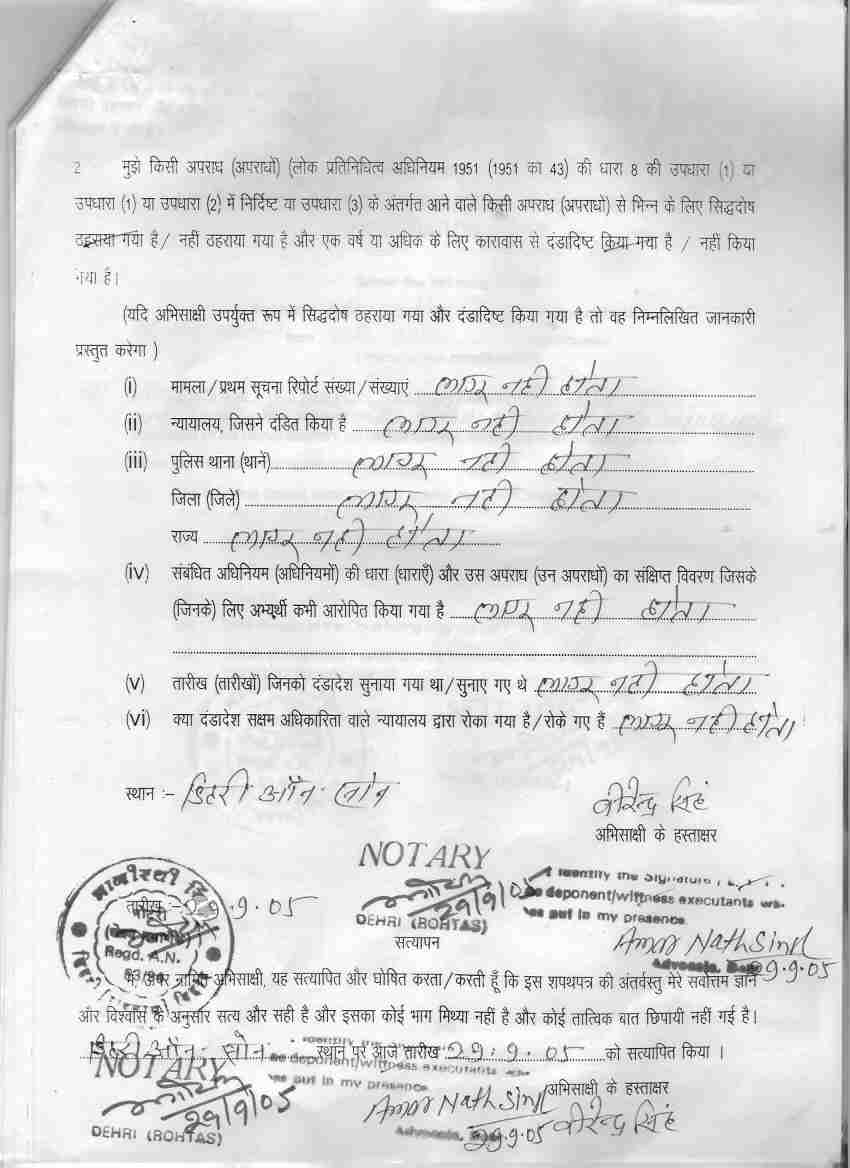 2 मुझे किसी अपराध (अपराधों) (लोक प्रतिनिधित्व अधिनियम 1951 (1951 का 43) की धारा 8 की उपधारा (1) या
उपधारा (1) या उपधारा (2) में निर्दिष्ट या उपधारा (3) के अंतर्गत आने वाले किसी अपराध (अपराधों) से भिन्न के लिए सिद्धदोष
ठहराया गया है / नहीं ठहराया गया है और एक वर्ष या अधिक के लिए कारावास से दंडादिष्ट किया गया है / नहीं किया
गया है।
(यदि अभिसाक्षी उपर्युक्त रूप में सिद्धदोष ठहराया गया और दंडादिष्ट किया गया है तो वह निम्नलिखित जानकारी
प्रस्तुत करेगा )
(i) मामला / प्रथम सूचना रिपोर्ट संख्या / संख्याएं लागू नही होता
(ii) न्यायालय, जिसने दंडित किया है लागू नही होता
(iii) पुलिस थाना (थाने) लागू नही होता
जिला (जिले) लागू नही होता
राज्य लागू नही होता
(iv) संबंधित अधिनियम (अधिनियमों) की धारा (धाराएँ) और उस अपराध (उन अपराधों) का संक्षिप्त विवरण जिसके
(जिनके) लिए अभ्यर्थी कभी आरोपित किया गया है लागू नही होता
(v) तारीख (तारीखों) जिनको दंडादेश सुनाया गया था / सुनाए गए थे लागू नही होता
(vi) क्या दंडादेश सक्षम अधिकारिता वाले न्यायालय द्वारा रोका गया है / रोके गए हैं लागू नही होता
स्थान :- डिहरी ऑन सोन
वीरेन्द्र सिंह
अभिसाक्षी के हस्ताक्षर
NOTARY
I identify the Signature
deponent/witness executants
put in my presence
तारीख :- 29.9.05
29/9/05
DEHRI (ROHTAS)
Regd. A.N.
सत्यापन
Amar Nath Singh
Advocate
29.9.05
मैं, ऊपर नामित अभिसाक्षी, यह सत्यापित और घोषित करता / करती हूँ कि इस शपथपत्र की अंतर्वस्तु मेरे सर्वोत्तम ज्ञान
और विश्वास के अनुसार सत्य और सही है और इसका कोई भाग मिथ्या नहीं है और कोई तात्विक बात छिपायी नहीं गई है।
डिहरी ऑन सोन स्थान पर आज तारीख 29.9.05 को सत्यापित किया ।
NOTARY
identify the
deponent/witness executants
put in my presence
29/9/05
DEHRI (ROHTAS)
अभिसाक्षी के हस्ताक्षर
Amar Nath Singh
Advocate
29.9.05
वीरेन्द्र सिंह